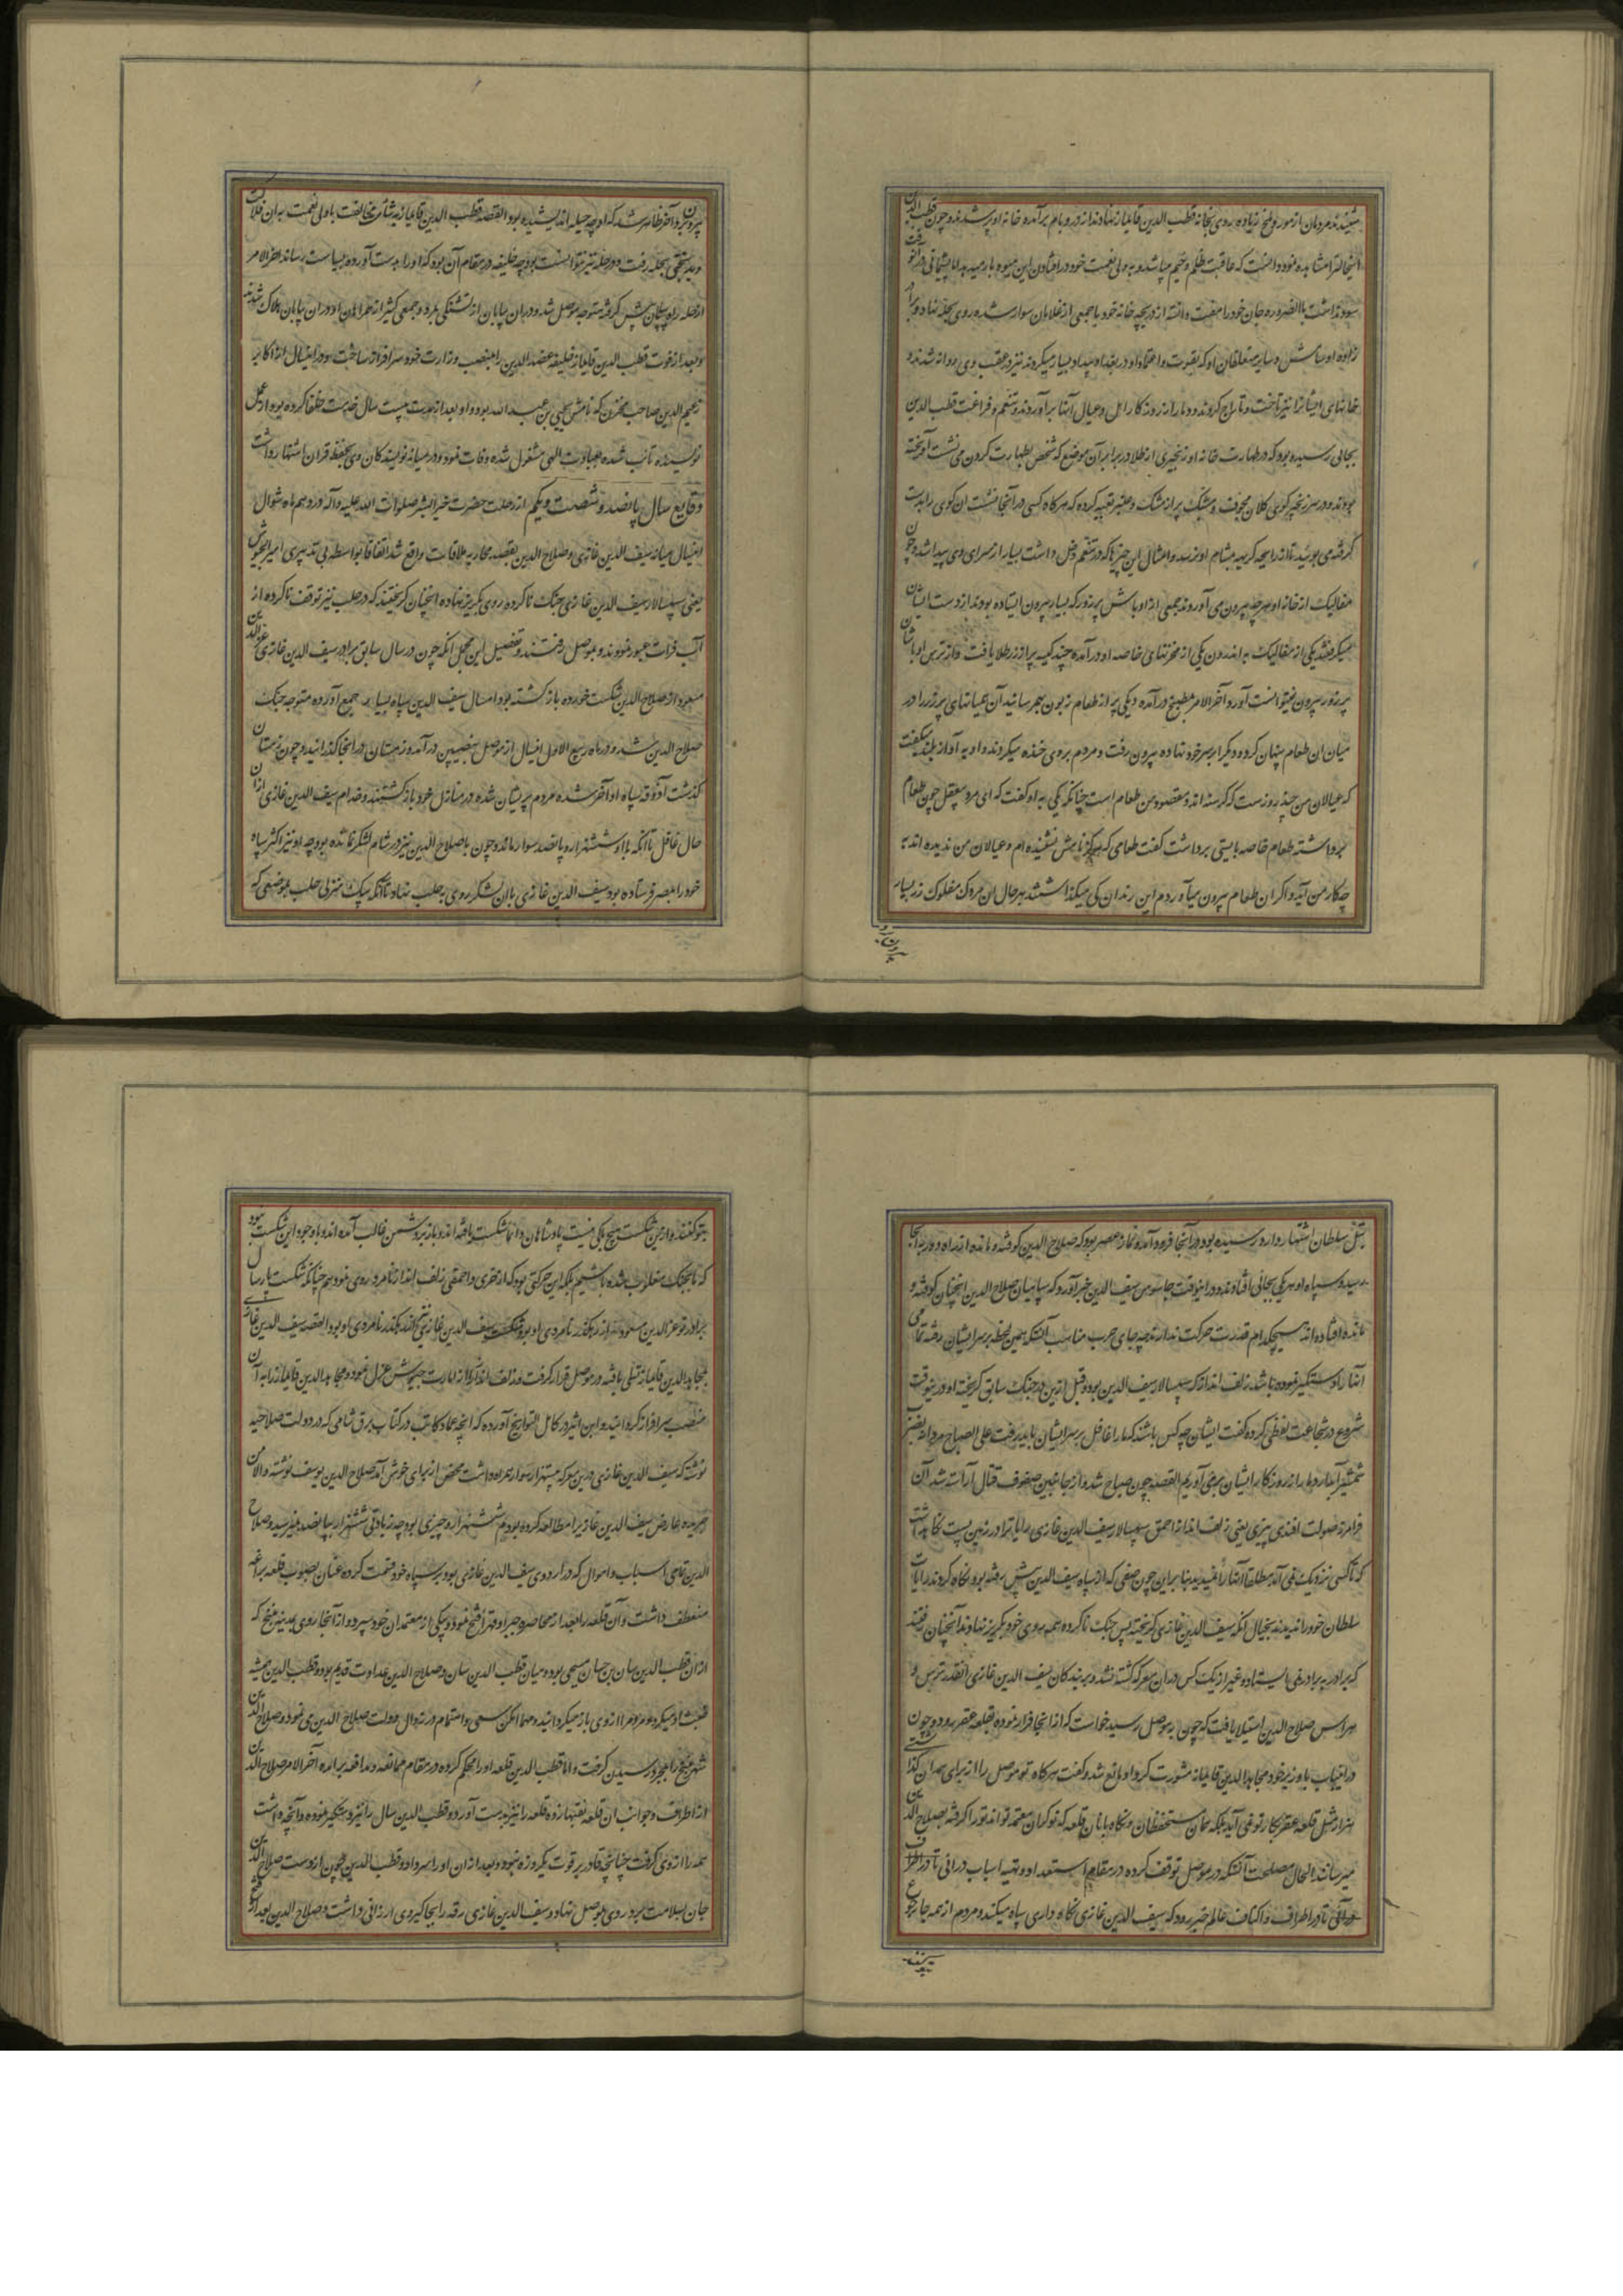 شنیدند مردمان از مور و ملخ زیاده روی بخانه قطب الدین قایماز نهادند از در و بام برآمده خانه او پر شد و چون قطب الدین
اینحالت را مشاهده نمود دانست که عاقبت ظلم وخیم میباشد و به ولی نعمت خود در افتادن این میوه بار میدهد اما پشیمانی در آنوقت
سود نداشت بالضروره جان خود را مفت دانسته از دریچه خانه خود با جمعی از غلامان سوار شده روی بحله نهاد و برادر
زاده او و سایر متعلقان او که بقوت و اعتماد او در بغداد بیداد بسیار میکردند نیز در عقب وی روانه شدند و
خانهای ایشانرا نیز تاخت و تاراج کردند و دمار از روزگار اهل و عیال آنها برآوردند و تنعم و فراغت قطب الدین
بجائی رسیده بود که در طهارت خانه او زنجیری از طلا در برابر آن موضع که شخص بطهارت کردن می نشست آویخته
بودند و در سر زنجیر گوئی کلان مجوف و مشبک پر از مشک و عنبر تعبیه کرده که هرگاه کسی در آنجا نشست آن گوی را بدست
گرفته می بوئید تا از رایحه کریهه بمشام او نرسد و امثال این چیزها که در تنعم دخل داشت بسیار از سرای وی پیدا شد و چون
مفالیک از خانه او هرچه بیرون می آوردند جمعی از اوباش پر زور که بسیار بیرون ایستاده بودند از دست ایشان
میگرفتند یکی از مفالیک به اندرون یکی از مخزنهای خاصه او درآمده چند کیسه پر از زر طلا یافت و از ترس اوباشان
پر زور بیرون نیتوانست آورد آخر الامر بمطبخ درآمده دیگی پر از طعام زبون بهم رسانید آن همیانهای پر زر را در
میان آن طعام پنهان کرده و دیگ را بر سر خود نهاده بیرون رفت و مردم بروی خنده میکردند و او به آواز بلند میگفت
که عیالان من چند روز است که گرسنه اند و مقصود من طعام است چنانکه یکی به او گفت که ای مرد بیعقل چون طعام
برداشته طعام خاصه بایستی برداشت گفت طعامی که هرگز نامش نشنیده ام و عیالان من ندیده اند به
چکار من آید و اگر آن طعام بیرون میآوردم این رندان کی میگذاشتند بهر حال آن مردک مفلوک زر بسیار
بیرون برد و آخر ظاهر شد که او چه حیله اندیشیده بود القصه قطب الدین قایماز به شأمت مخالفت با ولی نعمت به آن فلاکت
و بدبختی بحله رفت و در حله نیز نتوانست بود چه خلیفه در مقام آن بود که او را بدست آورده بسیاست رساند آخر الامر
از حله راه بیابان پیش گرفته متوجه موصل شد و در آن بیابان از تشنگی بمرد و جمعی کثیر از همراهان او در آن بیابان هلاک شدند
و بعد از فوت قطب الدین قایماز خلیفه عضد الدین را بمنصب وزارت خود سرافراز ساخت و در اینسال از اکابر
زعیم الدین صاحب مخزن که نامش یحیی بن عبدالله بود و او بعد از مدت بیست سال خدمت خلفا کرده بود از عمل
نویسنده تائب شده بعبادت الهی مشغول شده وفات نمود و در میانه نویسندگان وی بحفظ قران اشتهار داشت
وقایع سال پانصد و شصت و یکم از رحلت حضرت خیر البشر صلوات الله علیه و آله در دهم ماه شوال
اینسال میانه سیف الدین غازی و صلاح الدین بقصد محاربه ملاقات واقع شد اتفاقا بواسطه بی تدبیری امیر الجیوش
یعنی سپهسالار سیف الدین غازی جنگ ناکرده روی بگریز نهاده آنچنان گریختند که در حلب نیز توقف ناکرده از
آب فرات عبور نمودند و بموصل رفتند و تفصیل این مجمل آنکه چون در سال سابق برادر سیف الدین غازی عز الدین
مسعود از صلاح الدین شکست خورده باز گشته بود امسال سیف الدین سپاه بسیار جمع آورده متوجه جنگ
صلاح الدین شد و در ماه ربیع الاول اینسال از موصل بنصیبین درآمده زمستان در آنجا گذرانید و چون زمستان
گذشت آذوقه سپاه او آخر شده مردم پریشان شده در منازل خود باز گشتند و خدام سیف الدین غازی از آن
حال غافل تا آنکه با او ششهزار و پانصد سوار ماند و چون با صلاح الدین نیز در شام لشکر نمانده بود چه او نیز اکثر سپاه
خود را بمصر فرستاده بود سیف الدین غازی با آن لشکر روی به حلب نهاد تا آنکه بیک منزلی حلب بموضعی که
بتل سلطان اشتهار دارد رسیده بود و در آنجا فرود آمده نماز عصر بود که صلاح الدین کوفته و مانده از راه دور به آنجا
رسید و سپاه او هر یکی بجائی افتادند و در اینوقت جاسوس سیف الدین خبر آورد که سپاهیان صلاح الدین آنچنان کوفته و
مانده افتاده اند هیچکدام قدرت حرکت ندارند چه جای حرب مناسب آنستکه همین لحظه بر سر ایشان رفته تمامی
آنها را دستگیر نموده باشد زلف انداز که سپهسالار سیف الدین بود و قبل ازین در جنگ سابق گریخته او در ینوقت
شروع در شجاعت لفظی کرده گفت ایشان چه کس باشند که ما را غافل بر سر ایشان باید رفت علی الصباح مردانه بضرب
شمشیر آبدار دمار از روزگار ایشان برمی آوریم القصه چون صباح شد و از جانبین صفوف قتال آراسته شد آن
فرامرز صولت افندی پیزی یعنی زلف انداز احمق سپهسالار سیف الدین غازی رایات را در زمین پست نگاه داشت
که تا کسی نزدیک نمی آمد مطلقا آنها را نمیدید بنا بر این چون صفی که از سپاه سیف الدین پیش رفته بود نگاه کردند رایات
سلطان خود را ندیدند بخیال آنکه سیف الدین غازی گریخته پس جنگ ناکرده همه روی خود بگریز نهادند آنچنان رفتند
که برادر به برادر نمی ایستاد و غیر از یک کس در آن معرکه کشته نشد و بر بندگان سیف الدین غازی آنقدر ترس و
هراس صلاح الدین استیلا یافت که چون بموصل رسید خواست که از آنجا فرار نموده بقلعه عقر رود و چون
در اینباب با وزیر خود مجاهد الدین قایماز مشورت کرد او مانع شد و گفت هرگاه تو موصل را از برای همدان گذاشتی
هزار مثل قلعه عقر بکار تو نمی آید بلکه همان مستحفظان و نگاه بانان قلعه که نوکران معتمد تواند تو را گرفته بصلاح الدین
میرسانند الحال مصلحت آنستکه در موصل توقف کرده در مقام استعداد و تهیه اسباب درائی تا در اطراف
درائی تا در اطراف و اکناف عالم خبر رود که سیف الدین غازی نگاه داری سپاه میکند و مردم از همه جا رجوع
بتو کنند و ازین شکست هیچ باکی نیست پادشاهان دائما شکست یافته اند و باز بر دشمن غالب آمده اند و با وجود این شکست نبود
که ما بجنگ مغلوب شده باشیم بلکه این حرکتی بود که از خری و احمقی زلف انداز نامرد روی نمود هم چنانکه شکست پارسال
برادر تو عز الدین مسعود از رهگذر نامردی او بود شکست سیف الدین غازی نیز از رهگذر نامردی او بود القصه سیف الدین غازی
بمجاهد الدین قایماز تسلی یافته در موصل قرار گرفت و زلف انداز را از امارت جیوش عزل نمود و مجاهد الدین قایماز را به آن
منصب سرافراز گردانید و ابن اثیر در کامل التواریخ آورده که آنچه عماد کاتب در کتاب برق شامی که در دولت صلاحیه
نوشته که سیف الدین غازی درین معرکه بیست هزار سوار همراه داشت محض از برای خوش آمد صلاح الدین یوسف نوشته و الا من
جریده عارض سیف الدین غازی را مطالعه کرده بودم ششهزار و چیزی بود چه زیادتی ششهزار بپانصد نمیرسید و صلاح
الدین تمامی اسباب و اموال که در اردوی سیف الدین غازی بود بر سپاه خود قسمت کرده عنان بصوب قلعه بزاغه
منعطف داشت و آن قلعه را بعد از محاصره جبرا و قهرا فتح نمود و بیکی از معتمدان خود سپرد و از آنجا روی بمدینه منبج که
از آن قطب الدین سان بن حسان مسمی بود و میان قطب الدین سان و صلاح الدین عداوت قدیم بود و قطب الدین همیشه
غیبت او میکرد و مردم را از وی باز میگردانید و مهما امکن سعی و اهتمام در زوال دولت صلاح الدین می نمود و صلاح الدین
شهر منبج را بمجرد رسیدن گرفت و اما قطب الدین قلعه او را محکم کرده در مقام ممانعه و مدافعه برآمده آخر الامر صلاح الدین
از اطراف و جوانب آن قلعه نقبها زده قلعه را نیز بدست آورد و قطب الدین سال را نیز دستگیر نموده و آنچه داشت
همه را از وی گرفت چنانچه قادر بر قوت یکروزه نبود و بعد از آن او را سر داد و قطب الدین چون از دست صلاح الدین
جان بسلامت برد روی بموصل نهاد و سیف الدین غازی رقه را بجاگیر وی ارزانی داشت و صلاح الدین بعد از فتح